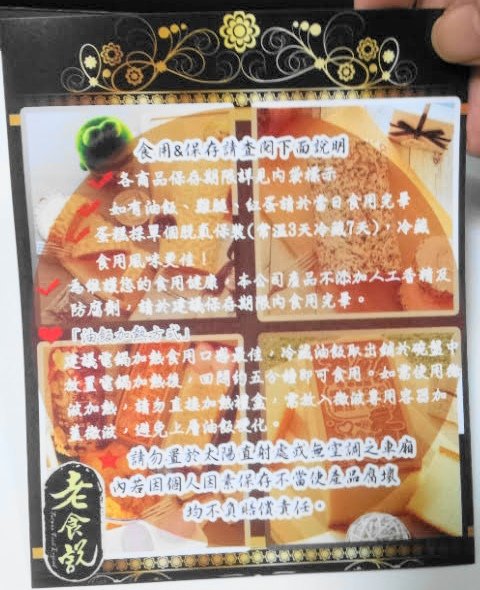 食用&保存請查閱下面說明
各商品保存期限詳見內袋標示
如有油飯、雞腿、紅蛋請於當日食用完畢
蛋糕採單個脫氧保裝(常溫3天冷藏7天)，冷藏
食用風味更佳！
為維護您的食用健康，本公司產品不添加人工香精及
防腐劑，請於建議保存期限內食用完畢。
『油飯加熱方式』
建議電鍋加熱食用口感最佳，冷藏油飯取出鋪於碗盤中
放置電鍋加熱後，回悶約五分鐘即可食用。如需使用微
波加熱，請勿直接加熱禮盒，需放入微波專用容器加
蓋微波，避免上層油飯硬化。
請勿置於太陽直射處或無空調之車廂
內若因個人因素保存不當使產品腐壞
均不負賠償責任。
老食說